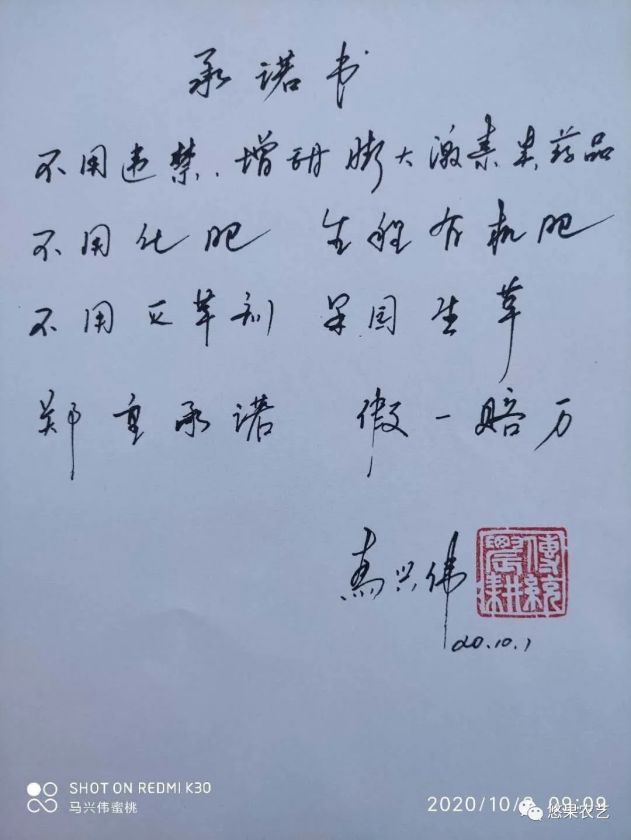 承诺书
不用违禁、增甜膨大激素类药品
不用化肥 生程有机肥
不用灭草剂 果园生草
郑重承诺 假一赔万
马兴伟
传统农耕
20.10.1
SHOT ON REDMI K30
马兴伟蜜桃
2020/10/2 09:09
悠果农艺